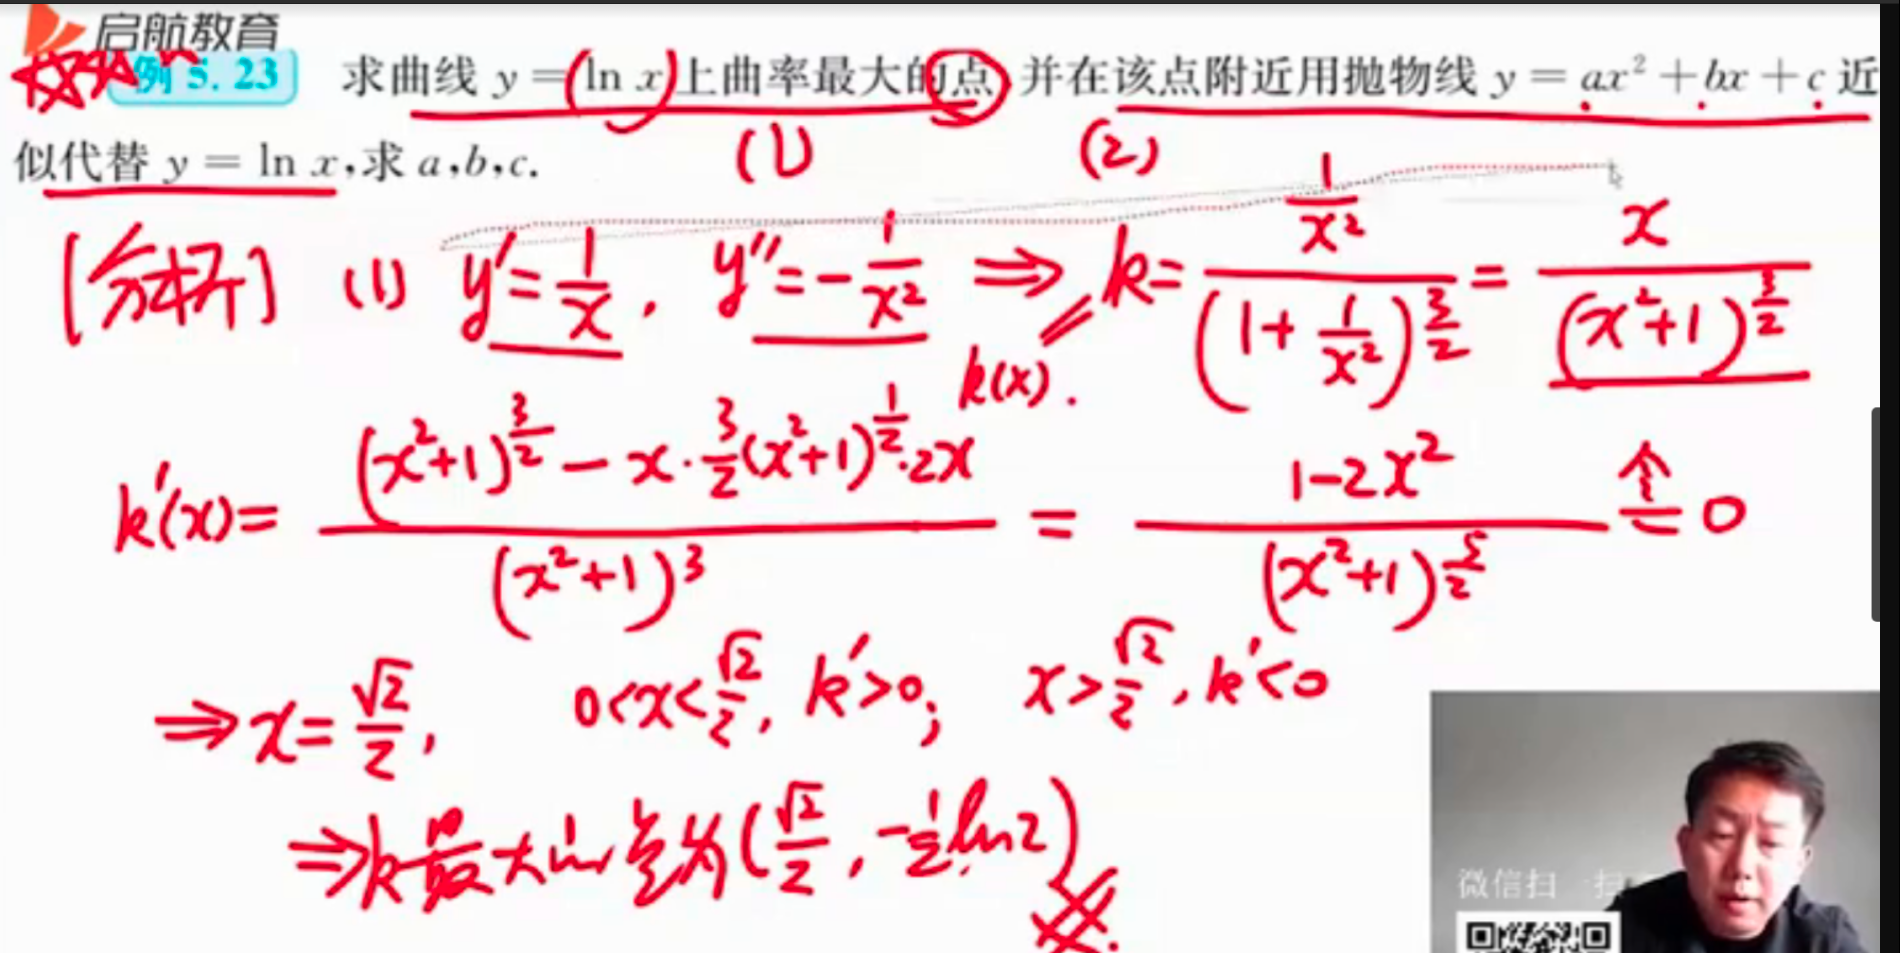 启航教育
例 5.23 求曲线 y = ln x 上曲率最大的点,并在该点附近用抛物线 y = ax² + bx + c 近
似代替 y = ln x,求 a,b,c.
(1) (2)
[分析] (1) y' = 1/x, y'' = -1/x² ⇒ k = (1/x²)/(1+1/x²)^(3/2) = x/(x²+1)^(3/2)
k(x).
k'(x) = ((x²+1)^(3/2) - x·3/2(x²+1)^(1/2)·2x)/(x²+1)³ = (1-2x²)/(x²+1)^(5/2) 令= 0
⇒ x = √2/2, 0<x<√2/2, k'>0; x>√2/2, k'<0
⇒ k最大的点为(√2/2, -1/2 ln2)
微信扫一扫